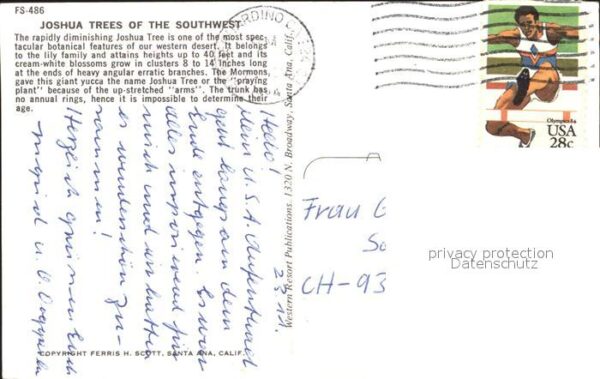 FS-486
JOSHUA TREES OF THE SOUTHWEST
The rapidly diminishing Joshua Tree is one of the most spec-
tacular botanical features of our western desert. It belongs
to the lily family and attains heights up to 40 feet and its
cream-white blossoms grow in clusters 8 to 14 inches long
at the ends of heavy angular erratic branches. The Mormons,
gave this giant yucca the name Joshua Tree or the "praying
plant" because of the up-stretched "arms". The trunk has
no annual rings, hence it is impossible to determine their
age.
Helio!
Mein U.S.A. Aufenthalt
geht langsam dem
Ende entgegen. Es war
alles imposant für
mich und wir hatten
es wunderschön zu-
sammen!
Herzlich grüssen Euch
Ingrid u.
COPYRIGHT FERRIS H. SCOTT, SANTA ANA, CALIF.
Western Resort Publications, 1320 N. Broadway, Santa Ana, Calif.
Olympics 84
USA
28c
Frau
CH-93
privacy protection
Datenschutz